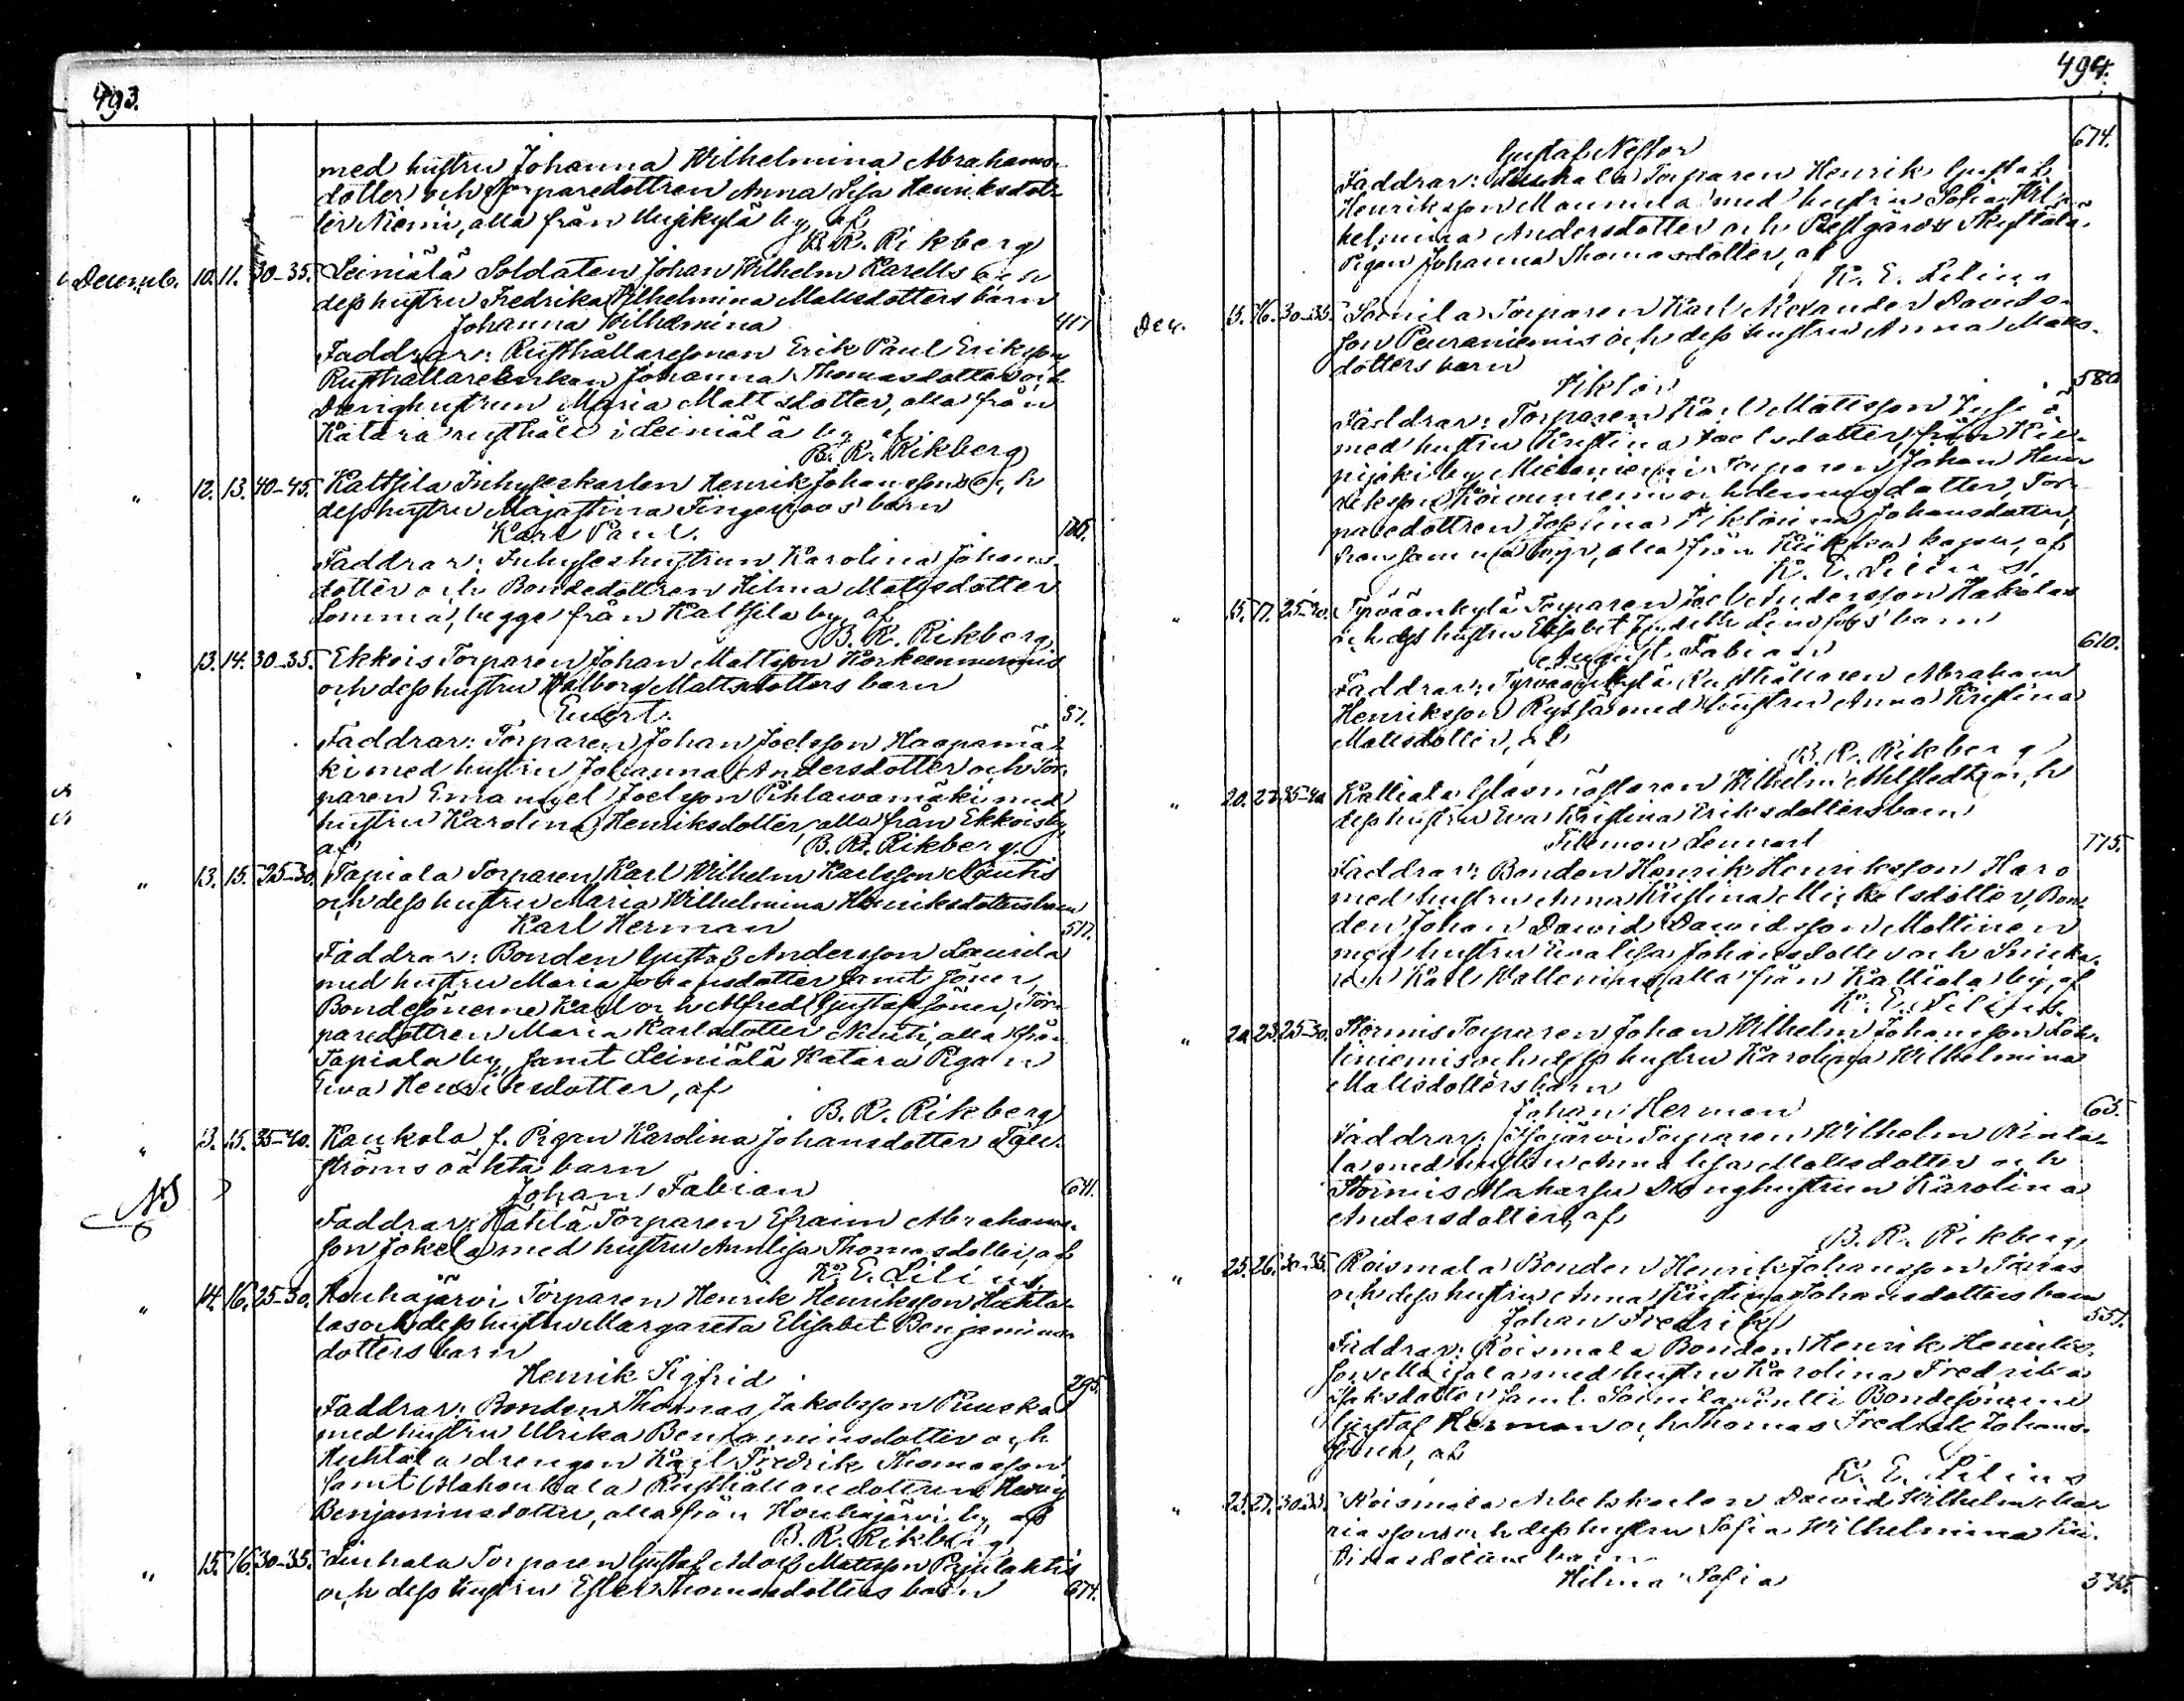 493.
med hustru Johanna Wilhelmina Abrahams-
dotter och Torparedottren Anna Lisa Henriksdot-
ter Niemi, alla från by, af
B. R. Rikberg
Decemb. 10. 11. 30-35. Leiniälä Soldaten Johan Wilhelm Karells och
dess hustru Fredrika Wilhelmina Mattsdotters barn
Johanna Wilhelmina 417
Faddrar: Rusthållaresonen Erik Paul Eriksson
Rusthållareenkan Johanna Thomasdotter och
Drenghustrun Maria Mattsdotter, alla från
Katara rusthåll i Leiniälä by af
B. R. Rikberg
" 12. 13. 40-45. Kaltsila Inhyseskarlen Henrik Johanssons och
dess hustru Majastina Fingerroos' barn
Karl Paul.
Faddrar: Inhyseshustrun Karolina Johans-
dotter och Bondedottren Hilma Mattsdotter
Lomma, begge från Kaltsila by, af
B. R. Rikberg
" 13. 14. 30-35. Ekkois Torparen Johan Mattsson Korkeenurmis
och dess hustru Walborg Mattsdotters barn
Evert. 57.
Faddrar: Torparen Johan Joelsson Haapamä-
ki med hustru Johanna Andersdotter och Tor-
paren Emanuel Joelsson Pihlawamäki med
hustru Karolina Henriksdotter, alla från Ekkois by,
af B. R. Rikberg.
" 13. 15. 25-30. Tapiola Torparen Karl Wilhelm Karlsson Nautis
och dess hustru Maria Wilhelmina Henriksdotters barn
Karl Herman 517.
Faddrar: Bonden Gustaf Andersson Laurila
med hustru Maria Johansdotter samt söner,
Bondesönerne Karl och Alfred Gustafssöner, Tor-
paredottren Maria Karlsdotter Nauti, alla från
Tapiola by, samt Leiniälä Katara Pigan
Eva Henriksdotter, af
B. R. Rikberg
" 13. 15. 35-40. Kaukola f. Pigan Karolina Johansdotter
ströms oäkta barn
NB Johan Fabian 641.
Faddrar: Torparen Efraim Abrahams-
son Jokela med hustru Annlisa Thomasdotter, af
K. E. Lilius
" 14. 16. 25-30. Houhajärvi Torparen Henrik Henriksson Huhta-
las och dess hustru Margareta Elisabet Benjamins-
dotters barn
Henrik Sigfrid 295.
Faddrar: Bonden Thomas Jakobsson Puuska
med hustru Ulrika Benjaminsdotter och
Huhtala drengen Karl Fredrik Thomasson
samt Rusthållaredottren
Benjaminsdotter, alla från Houhajärvi by af
B. R. Rikberg
" 15. 16. 30-35. Liuhala Torparen Gustaf Adolf Mattsson Pajulahtis
och dess hustru Ester Thomasdotters barn 674.
494.
Gustaf Nestor 674.
Faddrar: Liuhala Torparen Henrik Gustaf
Henriksson Mannila med hustru Sofia Wil-
helmina Andersdotter och Prestgårds
Pigan Johanna Thomasdotter, af
K. E. Lilius
Dec. 15. 16. 30-35. Soinila Torparen Karl Alexander Davids-
son Peuraniemis och dess hustru Anna
dotters barn
Viktor 580
Faddrar: Torparen Karl Mattsson
med hustru Kristina Joelsdotter, från
by Torparen Johan Hen-
riksson och dennes dotter, Tor-
paredottren Josefina Viktorina Johansdotter,
från samma by, alla från Kiikka kapell, af
K. E. Lilius.
" 15. 17. 25-30. Tyrväänkylä Torparen Joel Andersson Hakalas
och dess hustru Elisabet barn
August Fabian 610.
Faddrar: Tyrväänkylä Rusthållaren Abraham
Henriksson Ryssä med hustru Anna Kristina
Mattsdotter, af
B. R. Rikberg
" 20. 23. 35-40. Kalliala Glasmästaren Wilhelm Ahlstedts och
dess hustru Eva Kristina Eriksdotters barn
Filemon Lennart 775.
Faddrar: Bonden Henrik Henriksson Haro
med hustru Anna Kristina Mickelsdotter, Bon-
den Johan David Davidsson Mottinen
med hustru Evalisa Johansdotter och Snicka-
ren Karl Wallenius, alla från Kalliala by, af
K. E. Lilius.
" 20. 23. 25-30. Stormis Torparen Johan Wilhelm Johansson
niemis och dess hustru Karolina Wilhelmina
Mattsdotters barn
Johan Herman 63.
Faddrar: Torparen Wilhelm
med hustru Anna Lisa Mattsdotter och
Stormis Drenghustrun Karolina
Andersdotter, af
B. R. Rikberg
" 25. 26. 30-35. Roismala Bonden Henrik Johansson
och dess hustru Anna Kristina Johansdotters barn
Johan Fredrik 557.
Faddrar: Roismala Bonden Henrik Henriks-
son med hustru Karolina Fredrika
Isaksdotter samt Soinila Bondesönerne
Gustaf Herman och Thomas Fredrik Johans-
söner, af
K. E. Lilius
" 25. 27. 30-35. Roismala Arbetskarlen David Wilhelm Ma-
riassons och dess hustru Sofia Wilhelmina
barn
Hilma Sofia